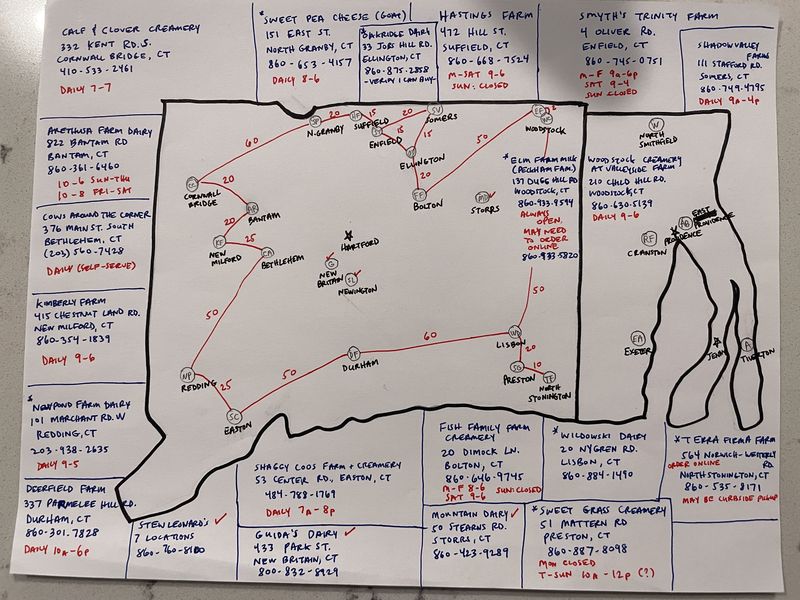 CALF & CLOVER CREAMERY
332 KENT RD. S.
CORNWALL BRIDGE, CT
410-533-2461
DAILY 7-7
*SWEET PEA CHEESE (GOAT)
151 EAST ST.
NORTH GRANBY, CT
860-653-4157
DAILY 8-6
*OAKRIDGE DAIRY
33 JOBS HILL RD.
ELLINGTON, CT
860-875-2858
-VERIFY I CAN BUY
HASTINGS FARM
472 HILL ST.
SUFFIELD, CT
860-668-7524
M-SAT 9-6
SUN: CLOSED
SMYTH'S TRINITY FARM
4 OLIVER RD.
ENFIELD, CT
860-745-0751
M-F 9a-6p
SAT 9-4
SUN CLOSED
SHADOW VALLEY
FARMS
111 STAFFORD RD.
SOMERS, CT
860-749-4795
DAILY 9a-4p
ARETHUSA FARM DAIRY
822 BANTAM RD
BANTAM, CT
860-361-6460
10-6 SUN-THU
10-8 FRI-SAT
COWS AROUND THE CORNER
376 MAIN ST. SOUTH
BETHLEHEM, CT
(203) 560-7428
DAILY (SELF-SERVE)
KIMBERLY FARM
415 CHESTNUT LAND RD.
NEW MILFORD, CT
860-354-1839
DAILY 9-6
*
NEWPOND FARM DAIRY
101 MARCHANT RD. W
REDDING, CT
203-938-2635
DAILY 9-5
DEERFIELD FARM
337 PARMELEE HILL RD.
DURHAM, CT
860-301-7828
DAILY 10A-6P
SP
N. GRANBY
20
HF
SUFFIELD
15
ST
ENFIELD
20
SV
SOMERS
15
15
ELLINGTON
20
FF
BOLTON
50
EF
2
WOODSTOCK
60
CC
CORNWALL
BRIDGE
20
AR
BANTAM
20
KF
NEW
MILFORD
25
CA
BETHLEHEM
HARTFORD
G
NEW
BRITAIN
SL
NEWINGTON
STORRS
50
NP
REDDING
25
SC
EASTON
50
DF
DURHAM
60
WD
LISBON
50
20
SG
PRESTON
10
TF
NORTH
STONINGTON
* ELM FARM MILK
(PECKHAM FAM)
137 DUGG HILL RD
WOODSTOCK, CT
860-933-9594
ALWAYS
OPEN,
MAY NEED
TO ORDER
ONLINE
860-933-5820
WOODSTOCK CREAMERY
AT VALLEYSIDE FARM
210 CHILD HILL RD.
WOODSTOCK, CT
860-630-5139
DAILY 9-6
W
NORTH
SMITHFIELD
AB
EAST
PROVIDENCE
PROVIDENCE
RF
CRANSTON
EA
EXETER
A
TIVERTON
STEW LEONARD'S
7 LOCATIONS
860-760-8100
SHAGGY COOS FARM + CREAMERY
53 CENTER RD., EASTON, CT
484-788-1769
DAILY 7a-8p
GUIDA'S DAIRY
433 PARK ST.
NEW BRITAIN, CT
800-832-8929
FISH FAMILY FARM
CREAMERY
20 DIMOCK LN.
BOLTON, CT
860-646-9745
M-F 8-6 SUN: CLOSED
SAT 9-6
MOUNTAIN DAIRY
50 STEARNS RD.
STORRS, CT
860-423-9289
* WILDOWSKI DAIRY
20 NYGREN RD.
LISBON, CT
860-884-1490
*SWEET GRASS CREAMERY
51 MATTERN RD
PRESTON, CT
860-887-8098
MON CLOSED
T-SUN 10A-12P (?)
*TERRA FIRMA FARM
564 NORWICH-WESTERLY
RD.
ORDER ONLINE
NORTH STONINGTON, CT
860-535-8171
MAY BE CURBSIDE PICKUP